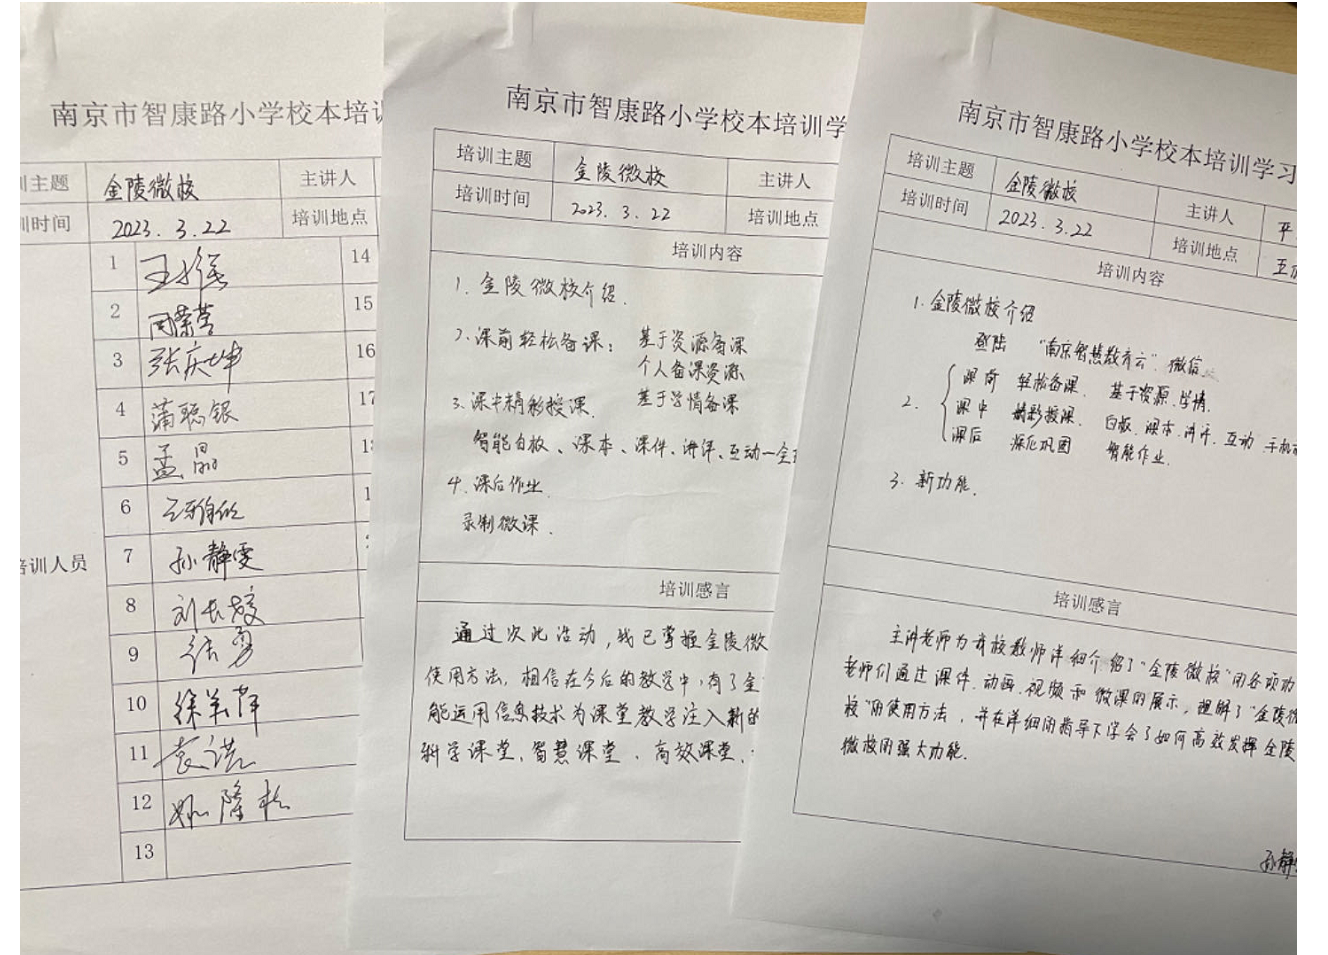 南京市智康路小学校本培训
训主题 金陵微校 主讲人
训时间 2023.3.22 培训地点
培训人员
1 14
2 周荣营 15
3 张庆坤 16
4 蒲聪银
5 孟晶
6
7 孙静雯
8 刘长姣
9 张勇
10 徐美萍
11 袁洪
12 姚隆松
13
南京市智康路小学校本培训学
培训主题 金陵微校 主讲人
培训时间 2023.3.22 培训地点
培训内容
1. 金陵微校介绍.
2. 课前轻松备课: 基于资源备课
个人备课资源
3. 课中精彩授课. 基于学情备课
智能白板、课本、课件、讲评、互动一全
4. 课后作业
录制微课.
培训感言
通过次此活动,我已掌握金陵微
使用方法,相信在今后的教学中,有了金
能运用信息技术为课堂教学注入新的
科学课堂,智慧课堂、高效课堂,
南京市智康路小学校本培训学习
培训主题 金陵微校 主讲人
培训时间 2023.3.22 培训地点
培训内容
1. 金陵微校介绍
登陆 “南京智慧教育云” 微信
2. 课前 轻松备课. 基于资源、学情.
课中 精彩授课. 白板、课本、讲评、互动 手机
课后 深化巩固 智能作业.
3. 新功能.
培训感言
主讲老师为我校教师详细介绍了“金陵微校”的各项功
老师们通过课件、动画、视频和微课的展示,理解了“金陵微
校”的使用方法,并在详细的指导下学会了如何高效发挥金陵
微校的强大功能.
孙静